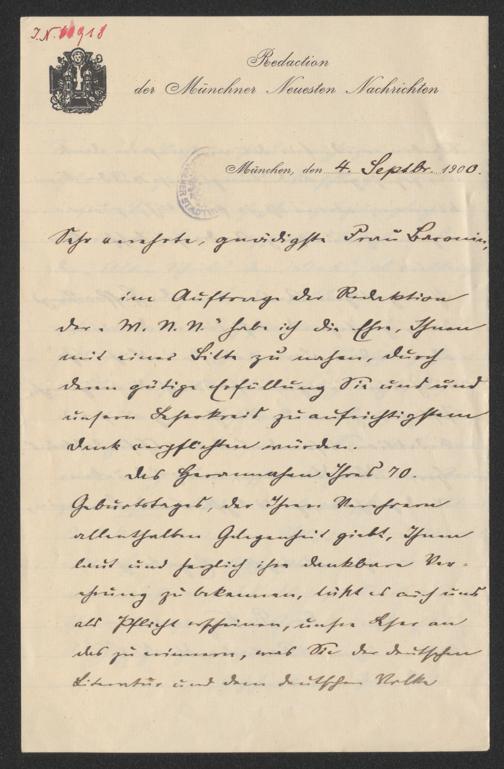 J.N. 60918
Redaction
der Münchner Neuesten Nachrichten
München, den 4. Septbr. 1900.
Sehr verehrte, gnädigste Frau Baronin,
im Auftrage der Redaktion
der „M. N. N.“ habe ich die Ehre, Ihnen
mit einer Bitte zu nahen, durch
deren gütige Erfüllung Sie uns und
unsern Leserkreis zu aufrichtigstem
Dank verpflichten würden.
Das Herannahen Ihres 70.
Geburtstages, der Ihren Verehrern
allenthalben Gelegenheit giebt, Ihnen
laut und herzlich ihre dankbare Ver-
ehrung zu bekennen, läßt es auch uns
als Pflicht erscheinen, unsre Leser an
das zu erinnern, was Sie der deutschen
Literatur und dem deutschen Volke